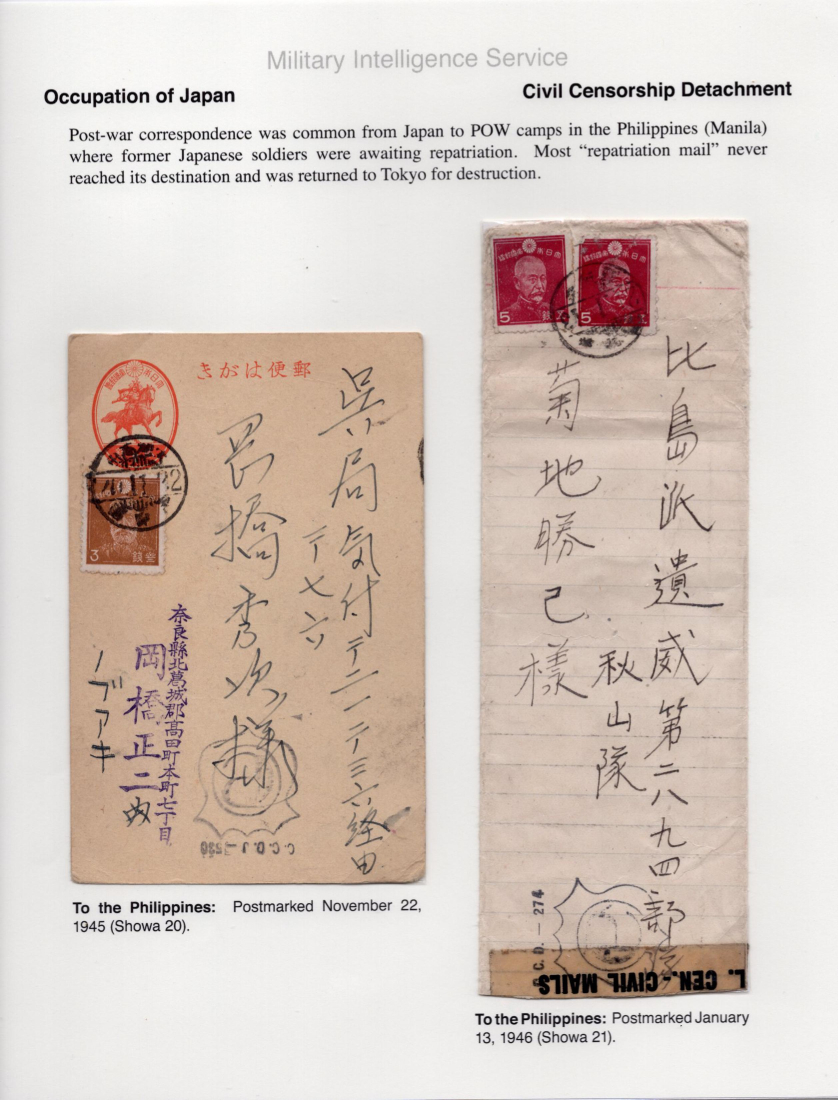 Military Intelligence Service
Occupation of Japan
Civil Censorship Detachment
Post-war correspondence was common from Japan to POW camps in the Philippines (Manila)
where former Japanese soldiers were awaiting repatriation. Most “repatriation mail” never
reached its destination and was returned to Tokyo for destruction.
きがは便郵
3
呉局気付テニ一テ三六経由
テ七六
岡橋秀次様
奈良縣北葛城郡高田町本町七丁目
岡橋正二内
ノブアキ
C.C.D.J
5
5
比島派遣威第二八九四部隊
秋山隊
菊地勝己様
C. D. - 274
L. CEN.-CIVIL MAILS
To the Philippines: Postmarked November 22,
1945 (Showa 20).
To the Philippines: Postmarked January
13, 1946 (Showa 21).